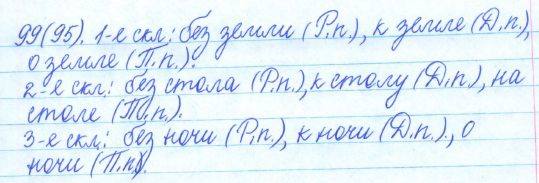 99(95). 1-е скл.: без земли (Р.п.), к земле (Д.п.),
о земле (П.п.).
2-е скл.: без стола (Р.п.), к столу (Д.п.), на
столе (П.п.).
3-е скл.: без ночи (Р.п.), к ночи (Д.п.), о
ночи (П.п.).